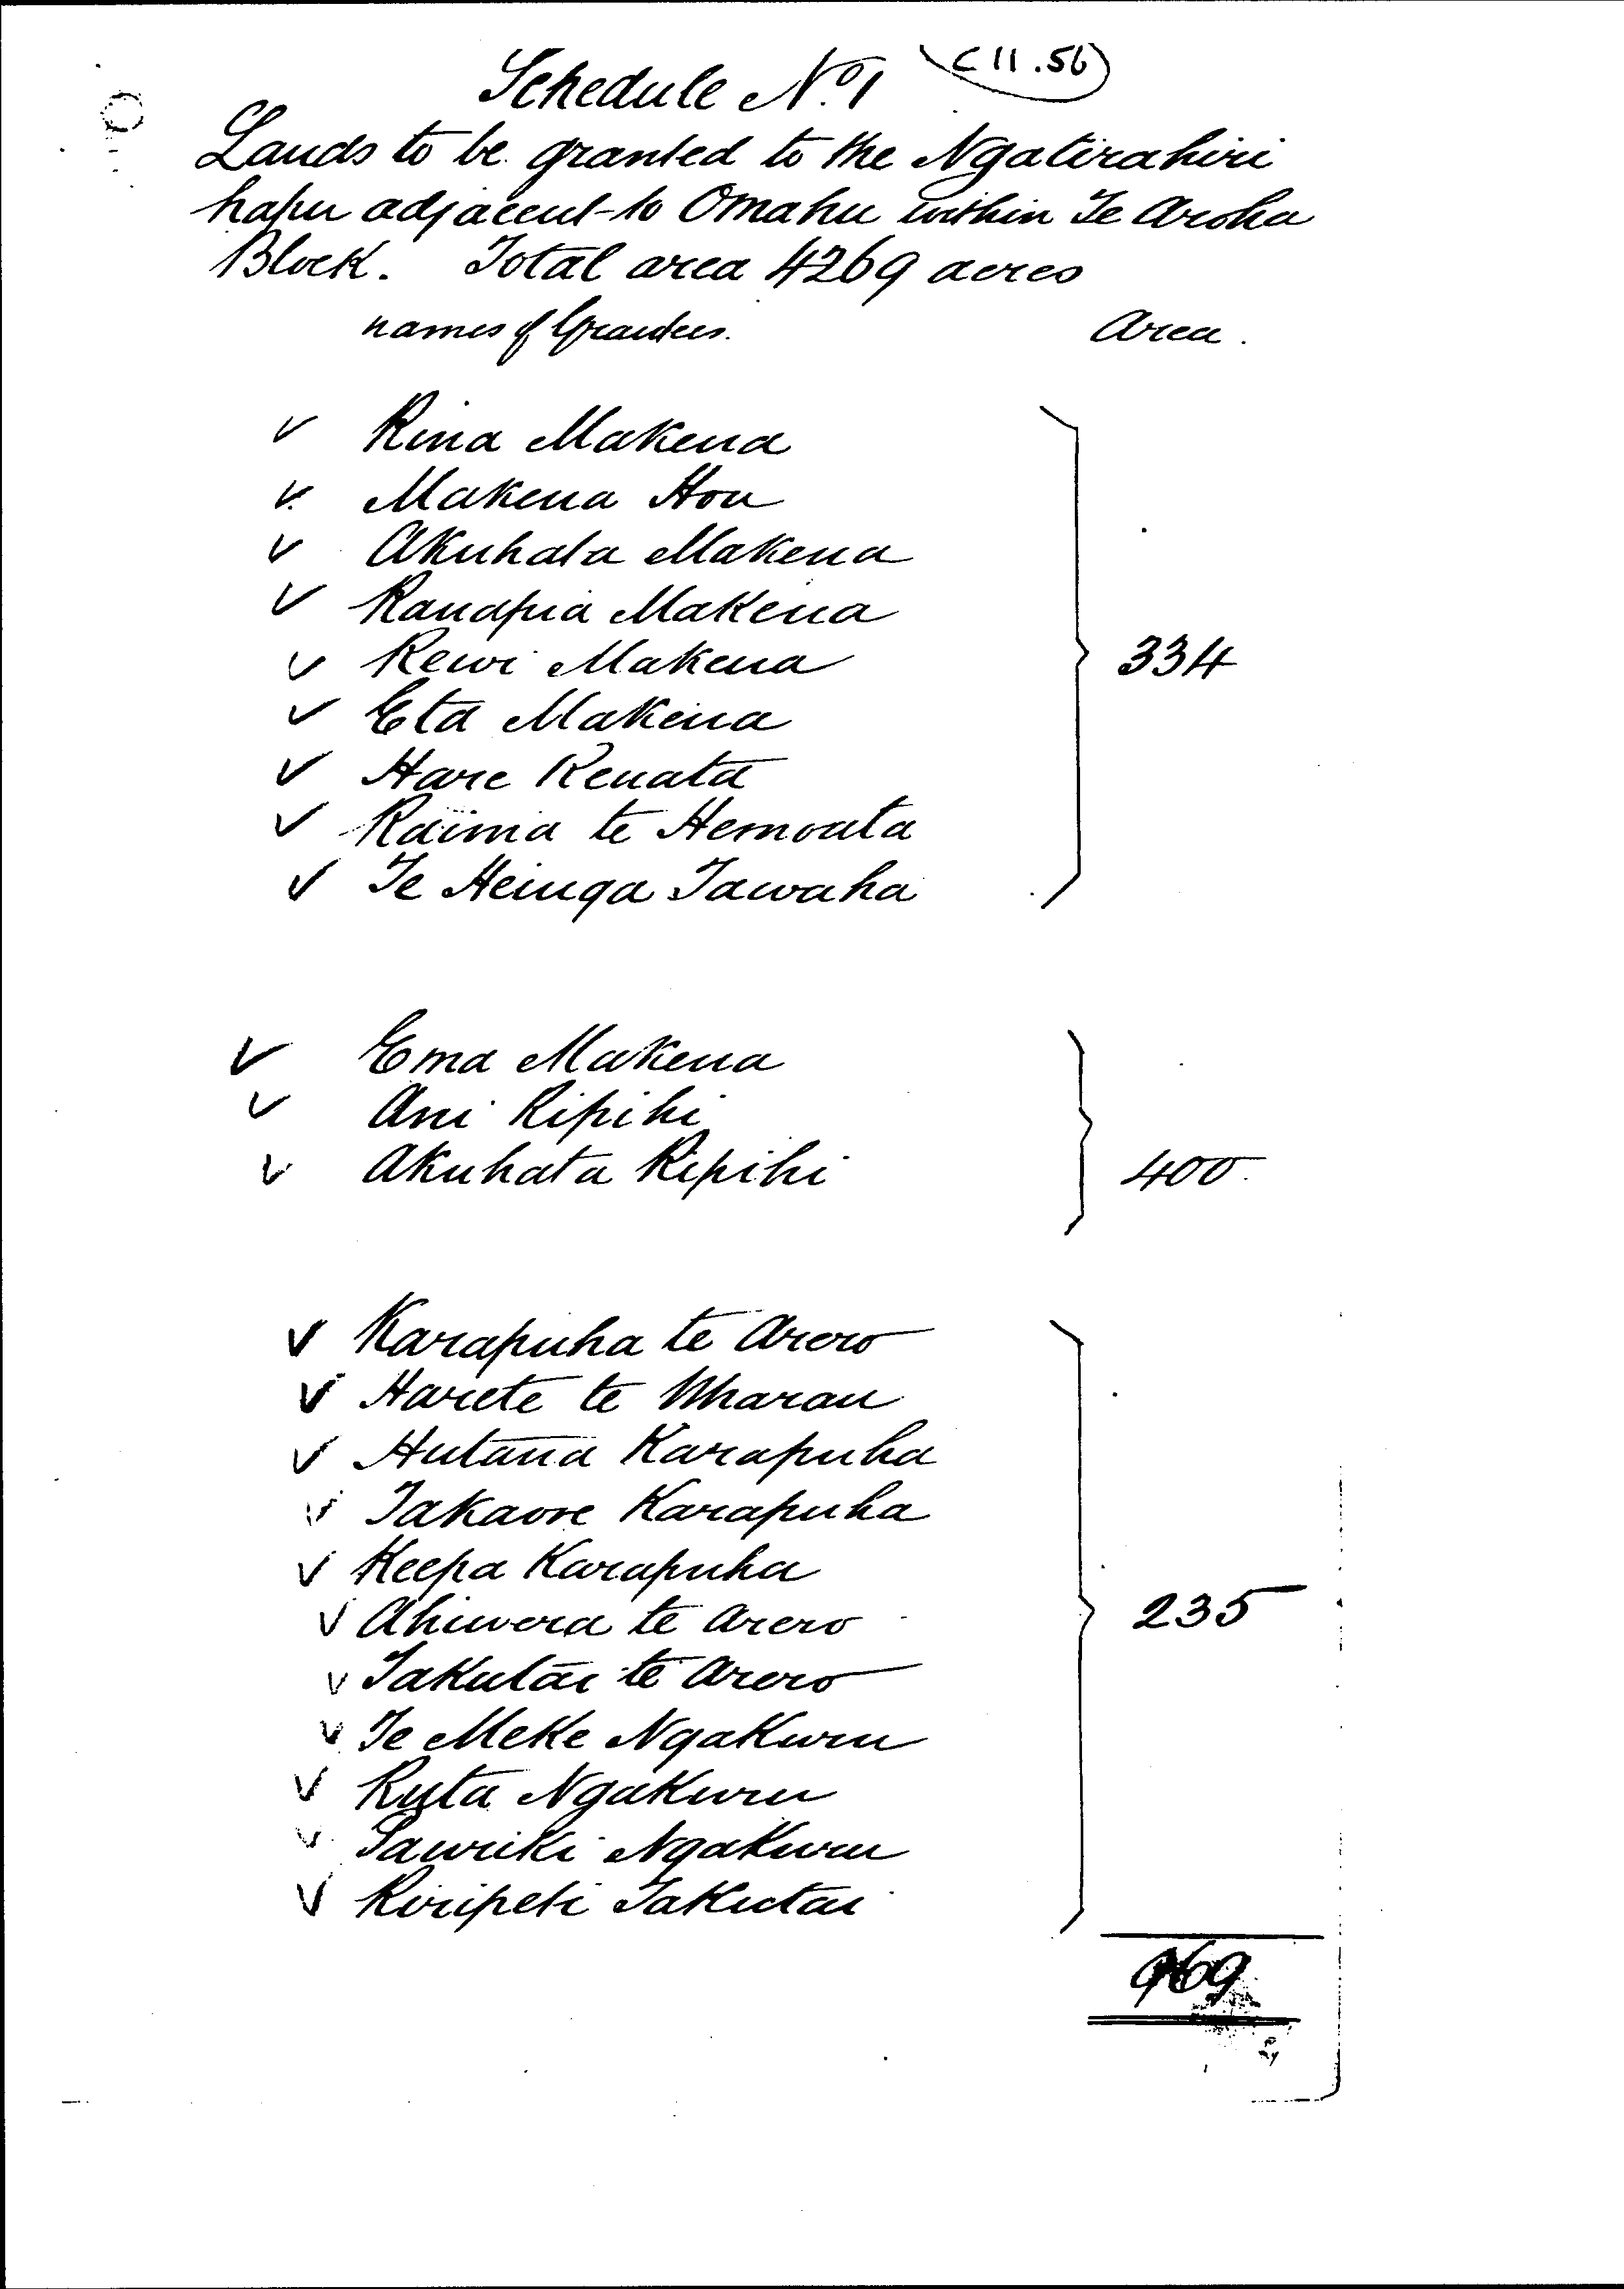 Schedule No. 1 C 11.56
Lands to be granted to the Ngatirahiri
hapu adjacent to Omahu within Te Aroha
Block. Total area 4269 acres
names of Grantees. Area.
✓ Rina Makena
✓ Makena Hou
✓ Akuhata Makena
✓ Ranapia Makena
✓ Rewi Makena 334
✓ Eta Makena
✓ Hare Renata
✓ Raima te Hemoata
✓ Te Heinga Tawaha
✓ Ema Makena
✓ Ani Ripihi
✓ Akuhata Ripihi 400
✓ Karapuha te Arero
✓ Hariete te Wharau
✓ Hutana Karapuha
✓ Takaore Karapuha
✓ Keepa Karapuha
✓ Ahiwera te Arero 235
✓ Takutai te Arero
✓ Te Meke Ngakuru
✓ Ruta Ngakuru
✓ Tauriki Ngakuru
✓ Riripeti Takutai
969